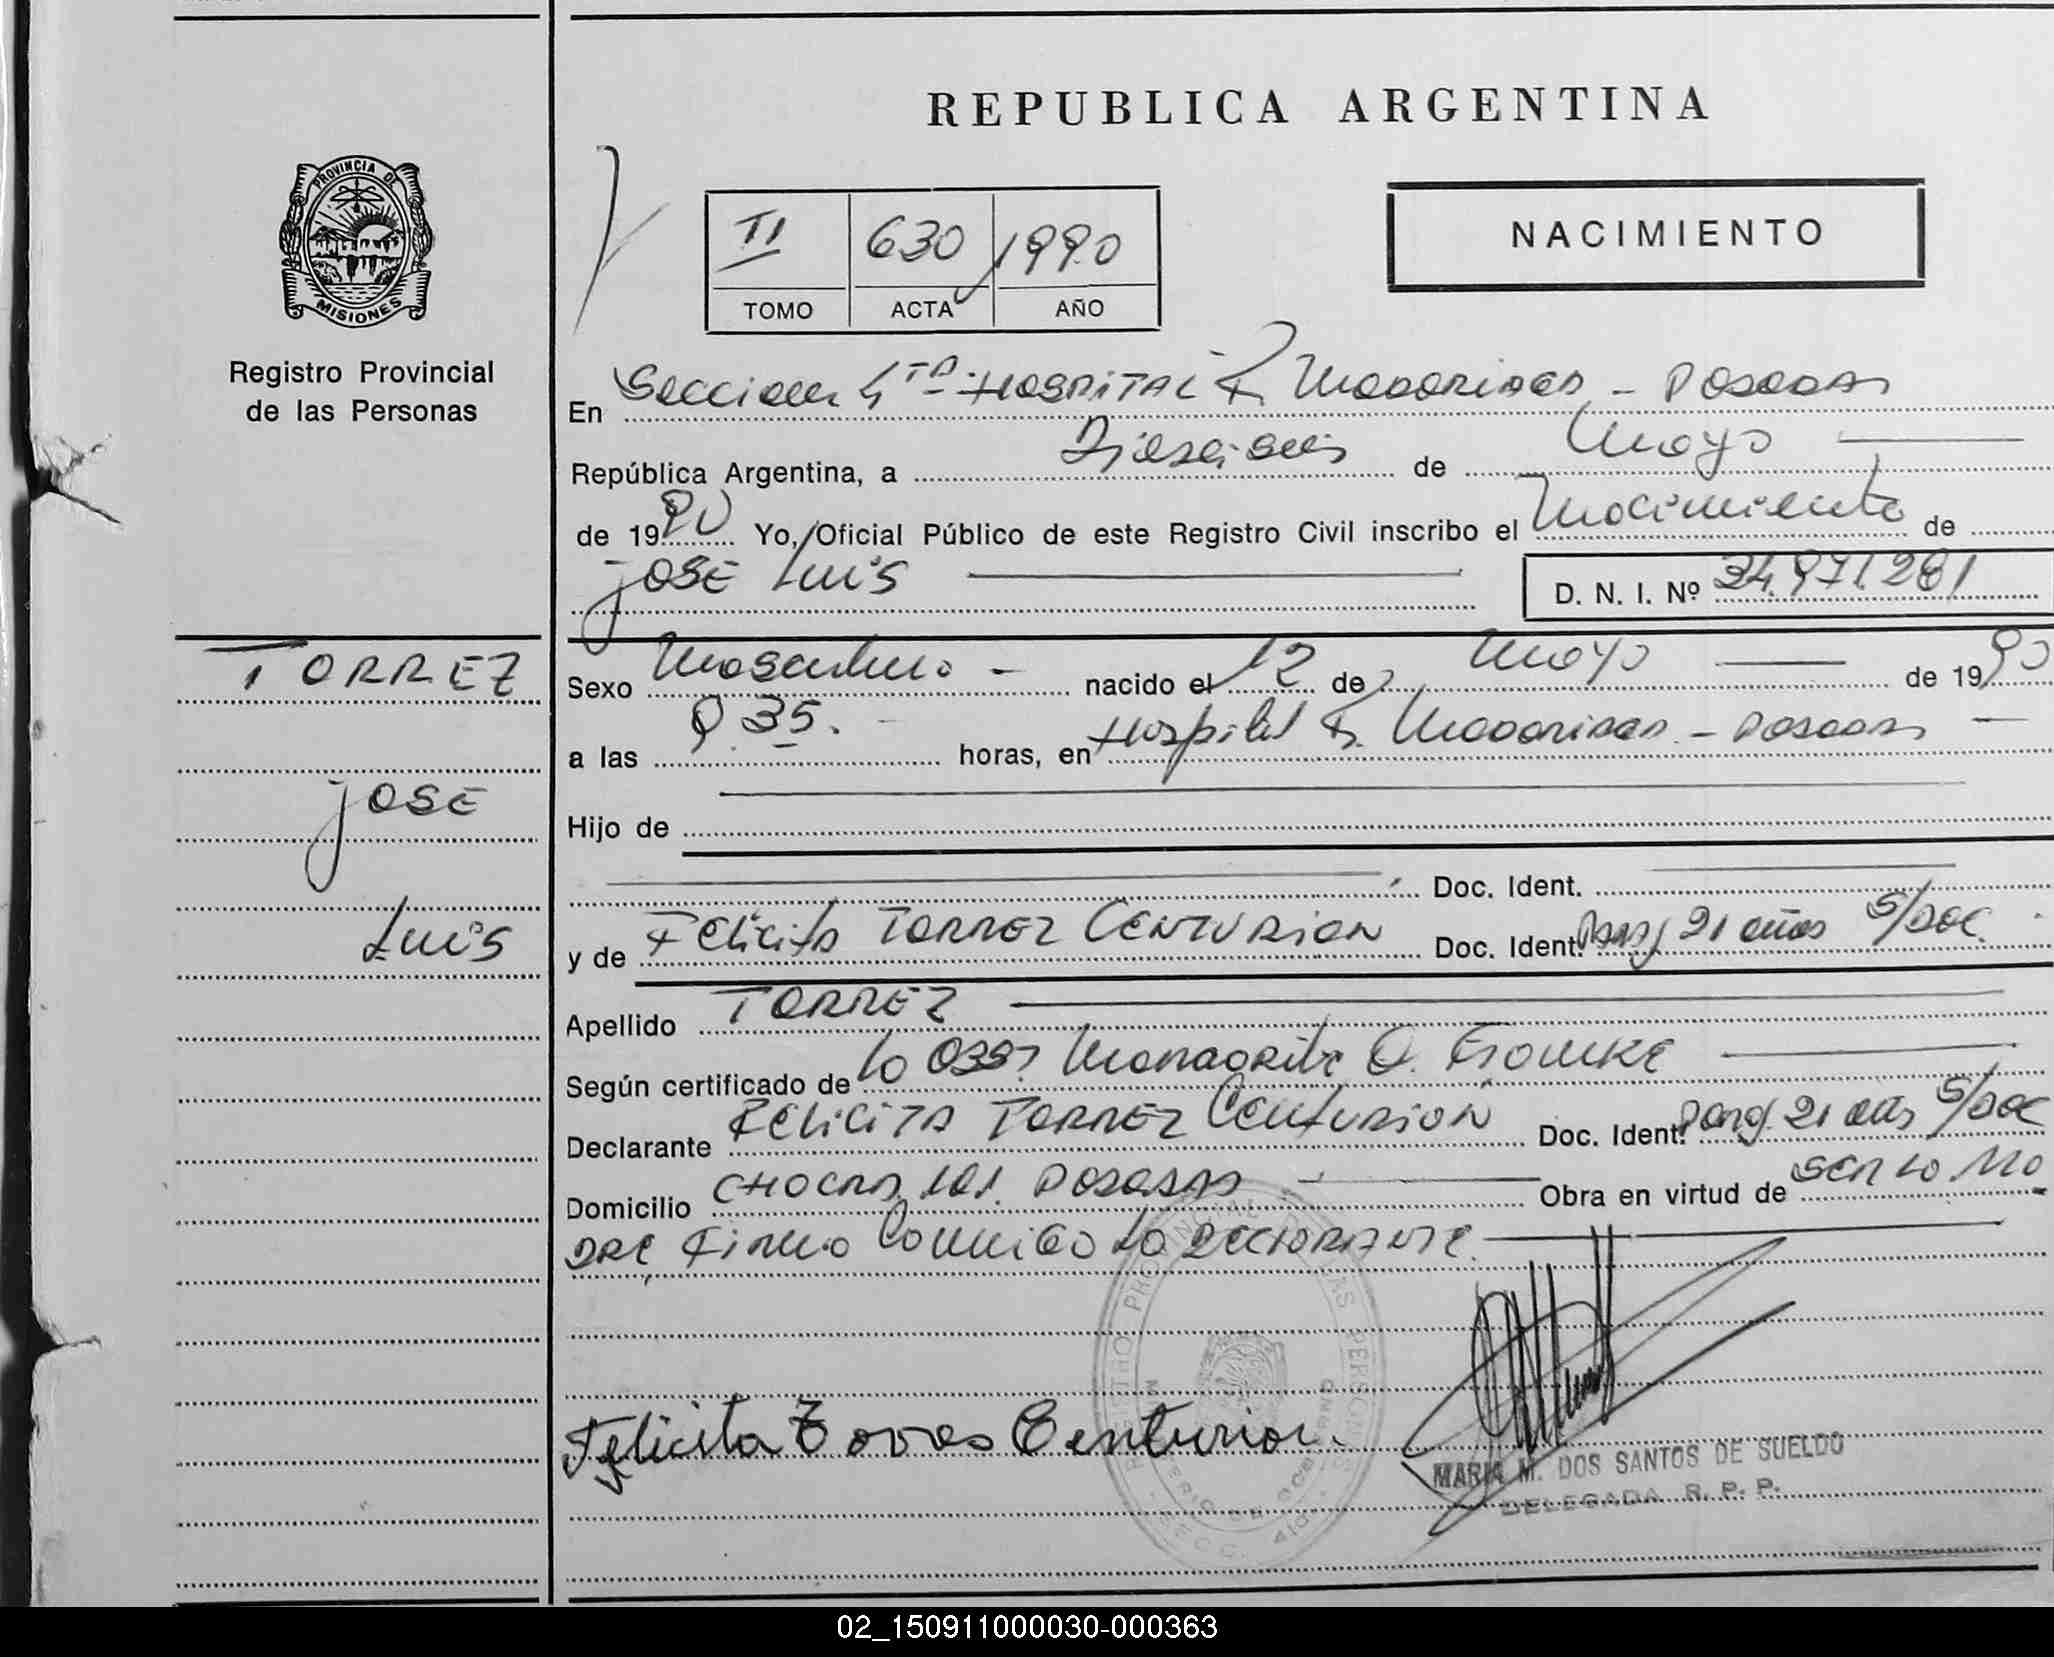 REPUBLICA ARGENTINA
PROVINCIA DE
MISIONES
Registro Provincial
de las Personas
II 630 1990
TOMO ACTA AÑO
NACIMIENTO
En Seccion 4TA. HOSPITAL R. Madariaga - Posadas
República Argentina, a Dieseiseis de Mayo
de 1990 Yo, Oficial Público de este Registro Civil inscribo el Nacimiento de
JOSE LUIS D. N. I. Nº 34.971.281
TORREZ
JOSE
LUIS
Sexo Masculino - nacido el 12 de Mayo de 1990
a las 9 35. horas, en Hospital R. Madariaga - Posadas
Hijo de
Doc. Ident.
y de FELICITA TORREZ CENTURION Doc. Ident. Parag 21 años S/DOC.
Apellido TORREZ
Según certificado de la OBST Margarita
Declarante FELICITA TORREZ CENTURION Doc. Ident. Parag. 21 años S/DOC
Domicilio CHACRA 101. POSADAS Obra en virtud de SER LA MA
DRE, Firma Conmigo LA DECLARANTE.
Felicita Torres Centurion.
MARIA M. DOS SANTOS DE SUELDO
DELEGADA R. P. P.
REGISTRO PROVINCIAL DE LAS PERSONAS
02_150911000030-000363